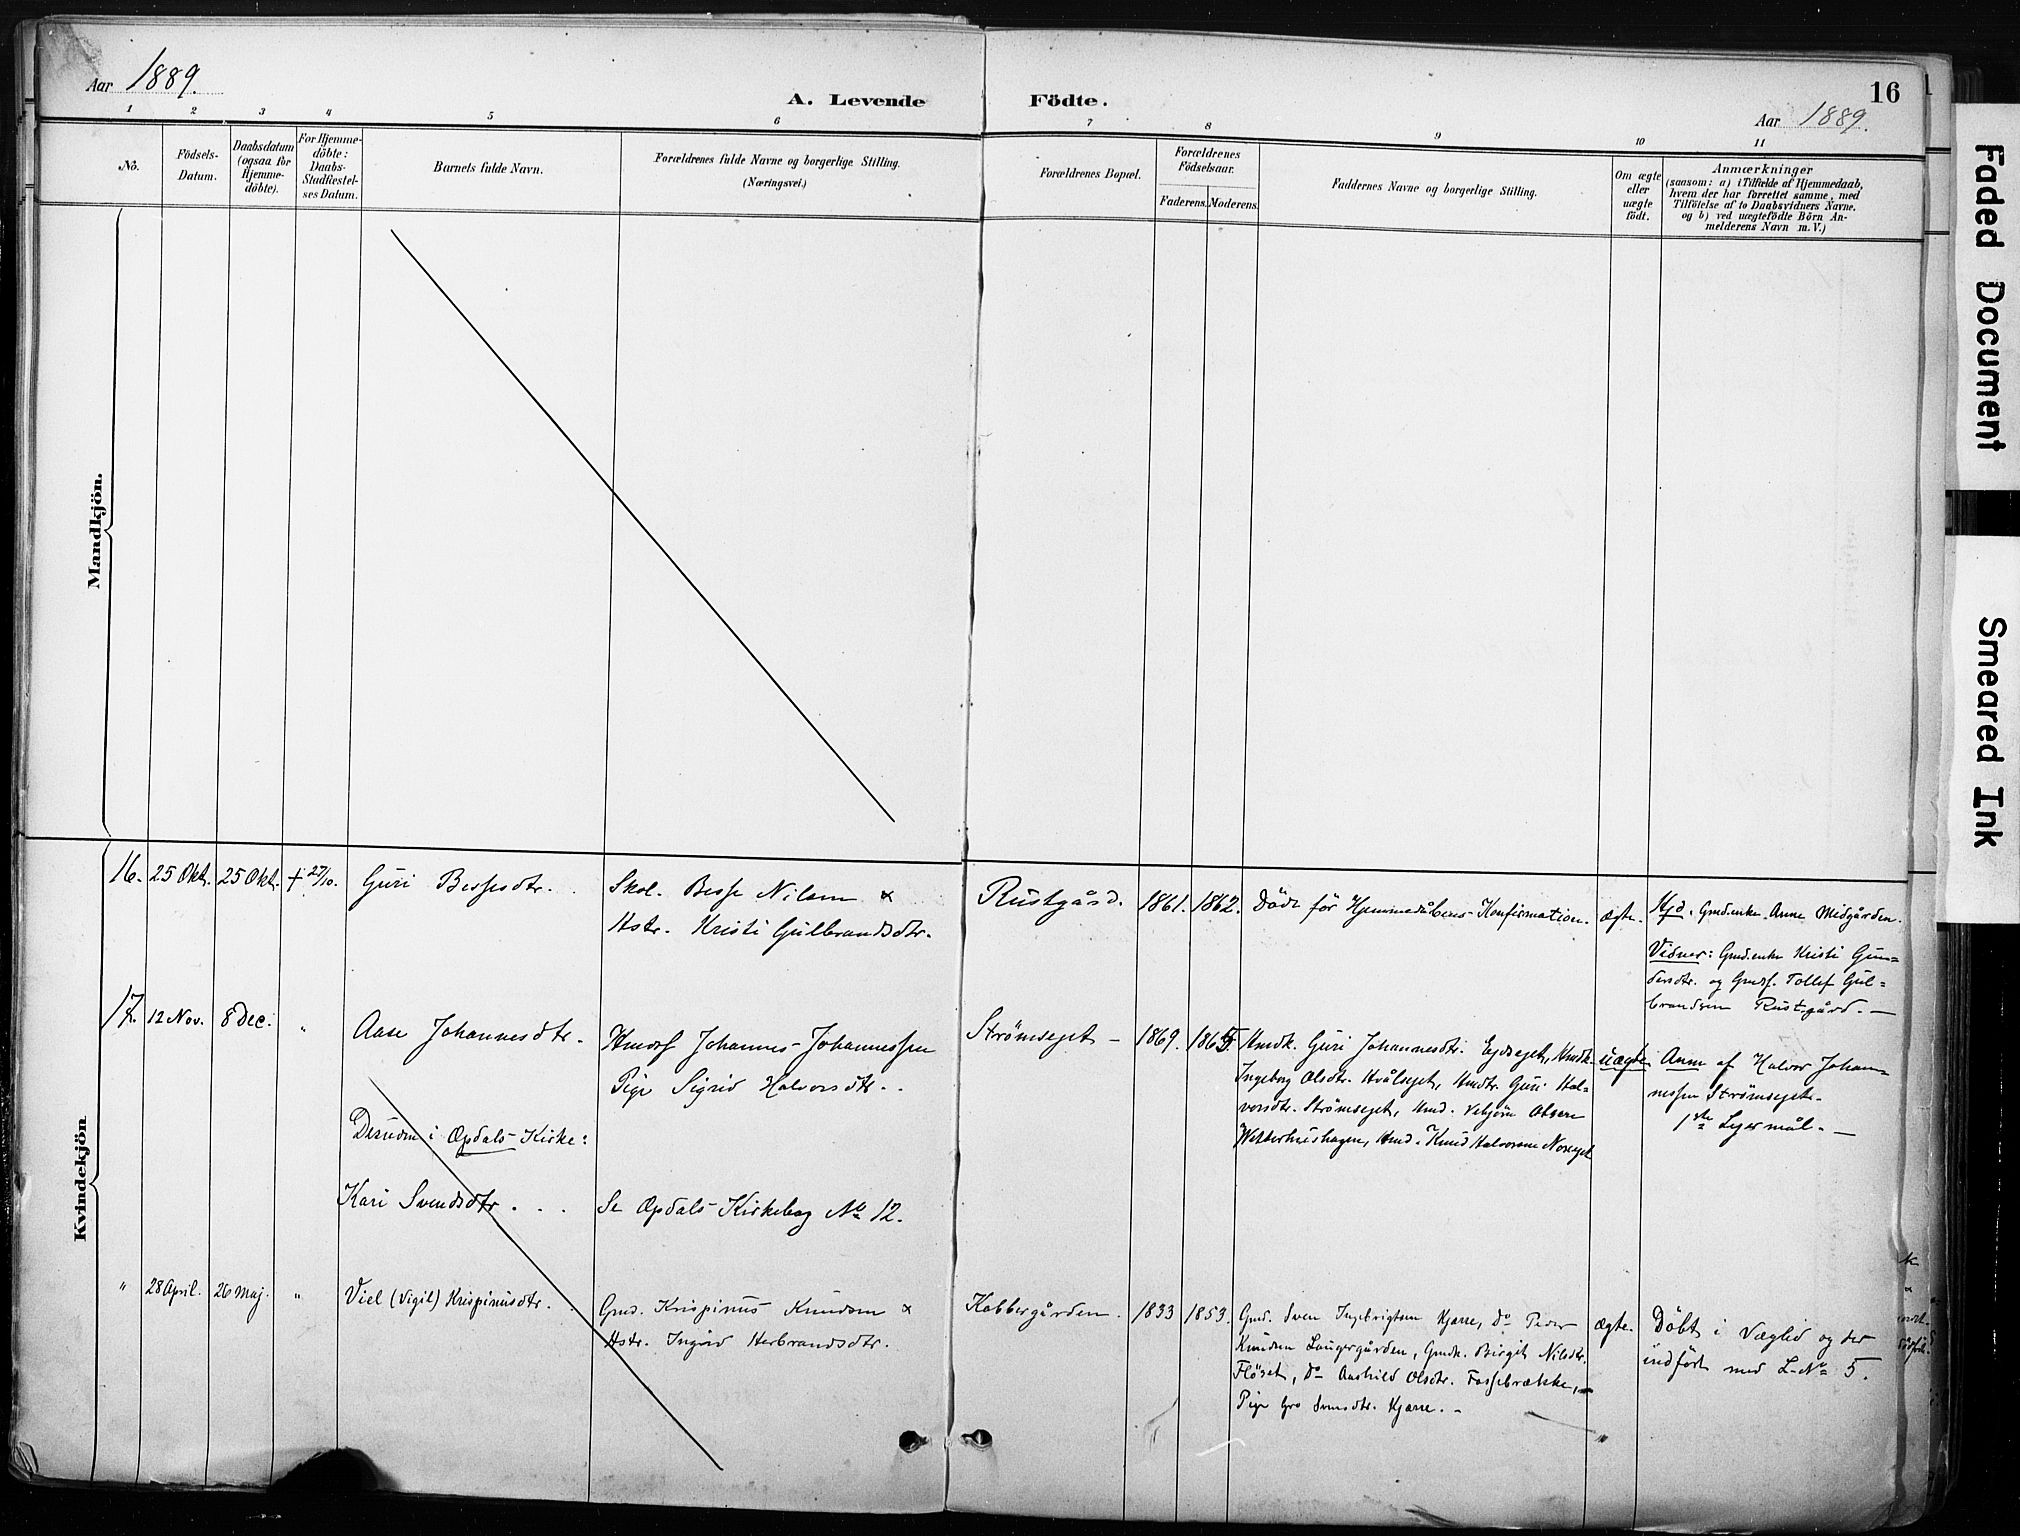 Aar 1889.
A. Levende Födte.
16
Aar 1889.
1 2 3 4 5 6 7 8 9 10 11
No.
Födsels-
Datum.
Daabsdatum
(ogsaa for
Hjemme-
döbte).
For Hjemme-
döbte:
Daabs-
Stadfæstel-
ses Datum.
Barnets fulde Navn.
Forældrenes fulde Navne og borgerlige Stilling.
(Næringsvei.)
Forældrenes Bopæl.
Forældrenes
Födselsaar.
Faderens. Moderens.
Faddernes Navne og borgerlige Stilling.
Om ægte
eller
uægte
födt.
Anmærkninger
(saasom: a) i Tilfælde af Hjemmedaab,
hvem der har forrettet samme, med
Tilföielse af to Daabsvidners Navne.
og b) ved uægtefödte Börn An-
melderens Navn m. V.)
Mandkjön.
Kvindekjön
16. 25 Okt. 25 Okt. † 27/10. Guri Bessesdtr. .
Skol. Besse Nilsen &
Hstr. Kristi Gulbrandsdtr.
Rustgård. 1861. 1862. Döde för Hjemmedåbens Konfirmation. ægte.
Hjd. Gmd.enke Anne Midgården.
Vidner: Gmd.enke Kristi Gun=
dersdtr. og Gmdf. Tollef Gul=
brandsen Rustgård. —
17. 12 Nov. 8 Dec. " Aase Johannesdtr.
Hmdsf Johannes Johannessen
Pige Sigrid Halvorsdtr. .
Strömseget – 1869. 1865
Hmdk. Guri Johannesdtr. Ejdseget, Hmdk.
Ingeborg Olsdtr. Hvålseget, Hmdtr. Guri Hal=
vorsdtr. Strömseget, Hmd. Vebjörn Olsen
Wetterhushagen, Hmd. Knud Halvorsen Noreget
uægte
Anm af Halvor Johan=
nessen Strömseget.
1ste Lejermål. —
Desuden i Opdals Kirke:
Kari Svendsdtr . . .
Se Opdals Kirkebog No 12.
" 28 April. 26 Maj. " Viel (Vigil) Krispinusdtr. .
Gmd. Krispinus Knudsen &
Hstr. Ingrid Herbrandsdtr.
Kobbergården. 1833 1853.
Gmd. Sven Ingebrigtsen Kjærre, do Peder
Knudsen Laugergården, Gmdk. Birgit Nilsdtr.
Flöset, do Aashild Olsdtr. Fossebrække,
Pige Gro Svensdtr. Kjærre. –
ægte.
Döbt i Væglid og der
indfört med L-No 5.
"
Faded Document
Smeared Ink